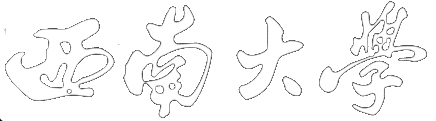 西南大學